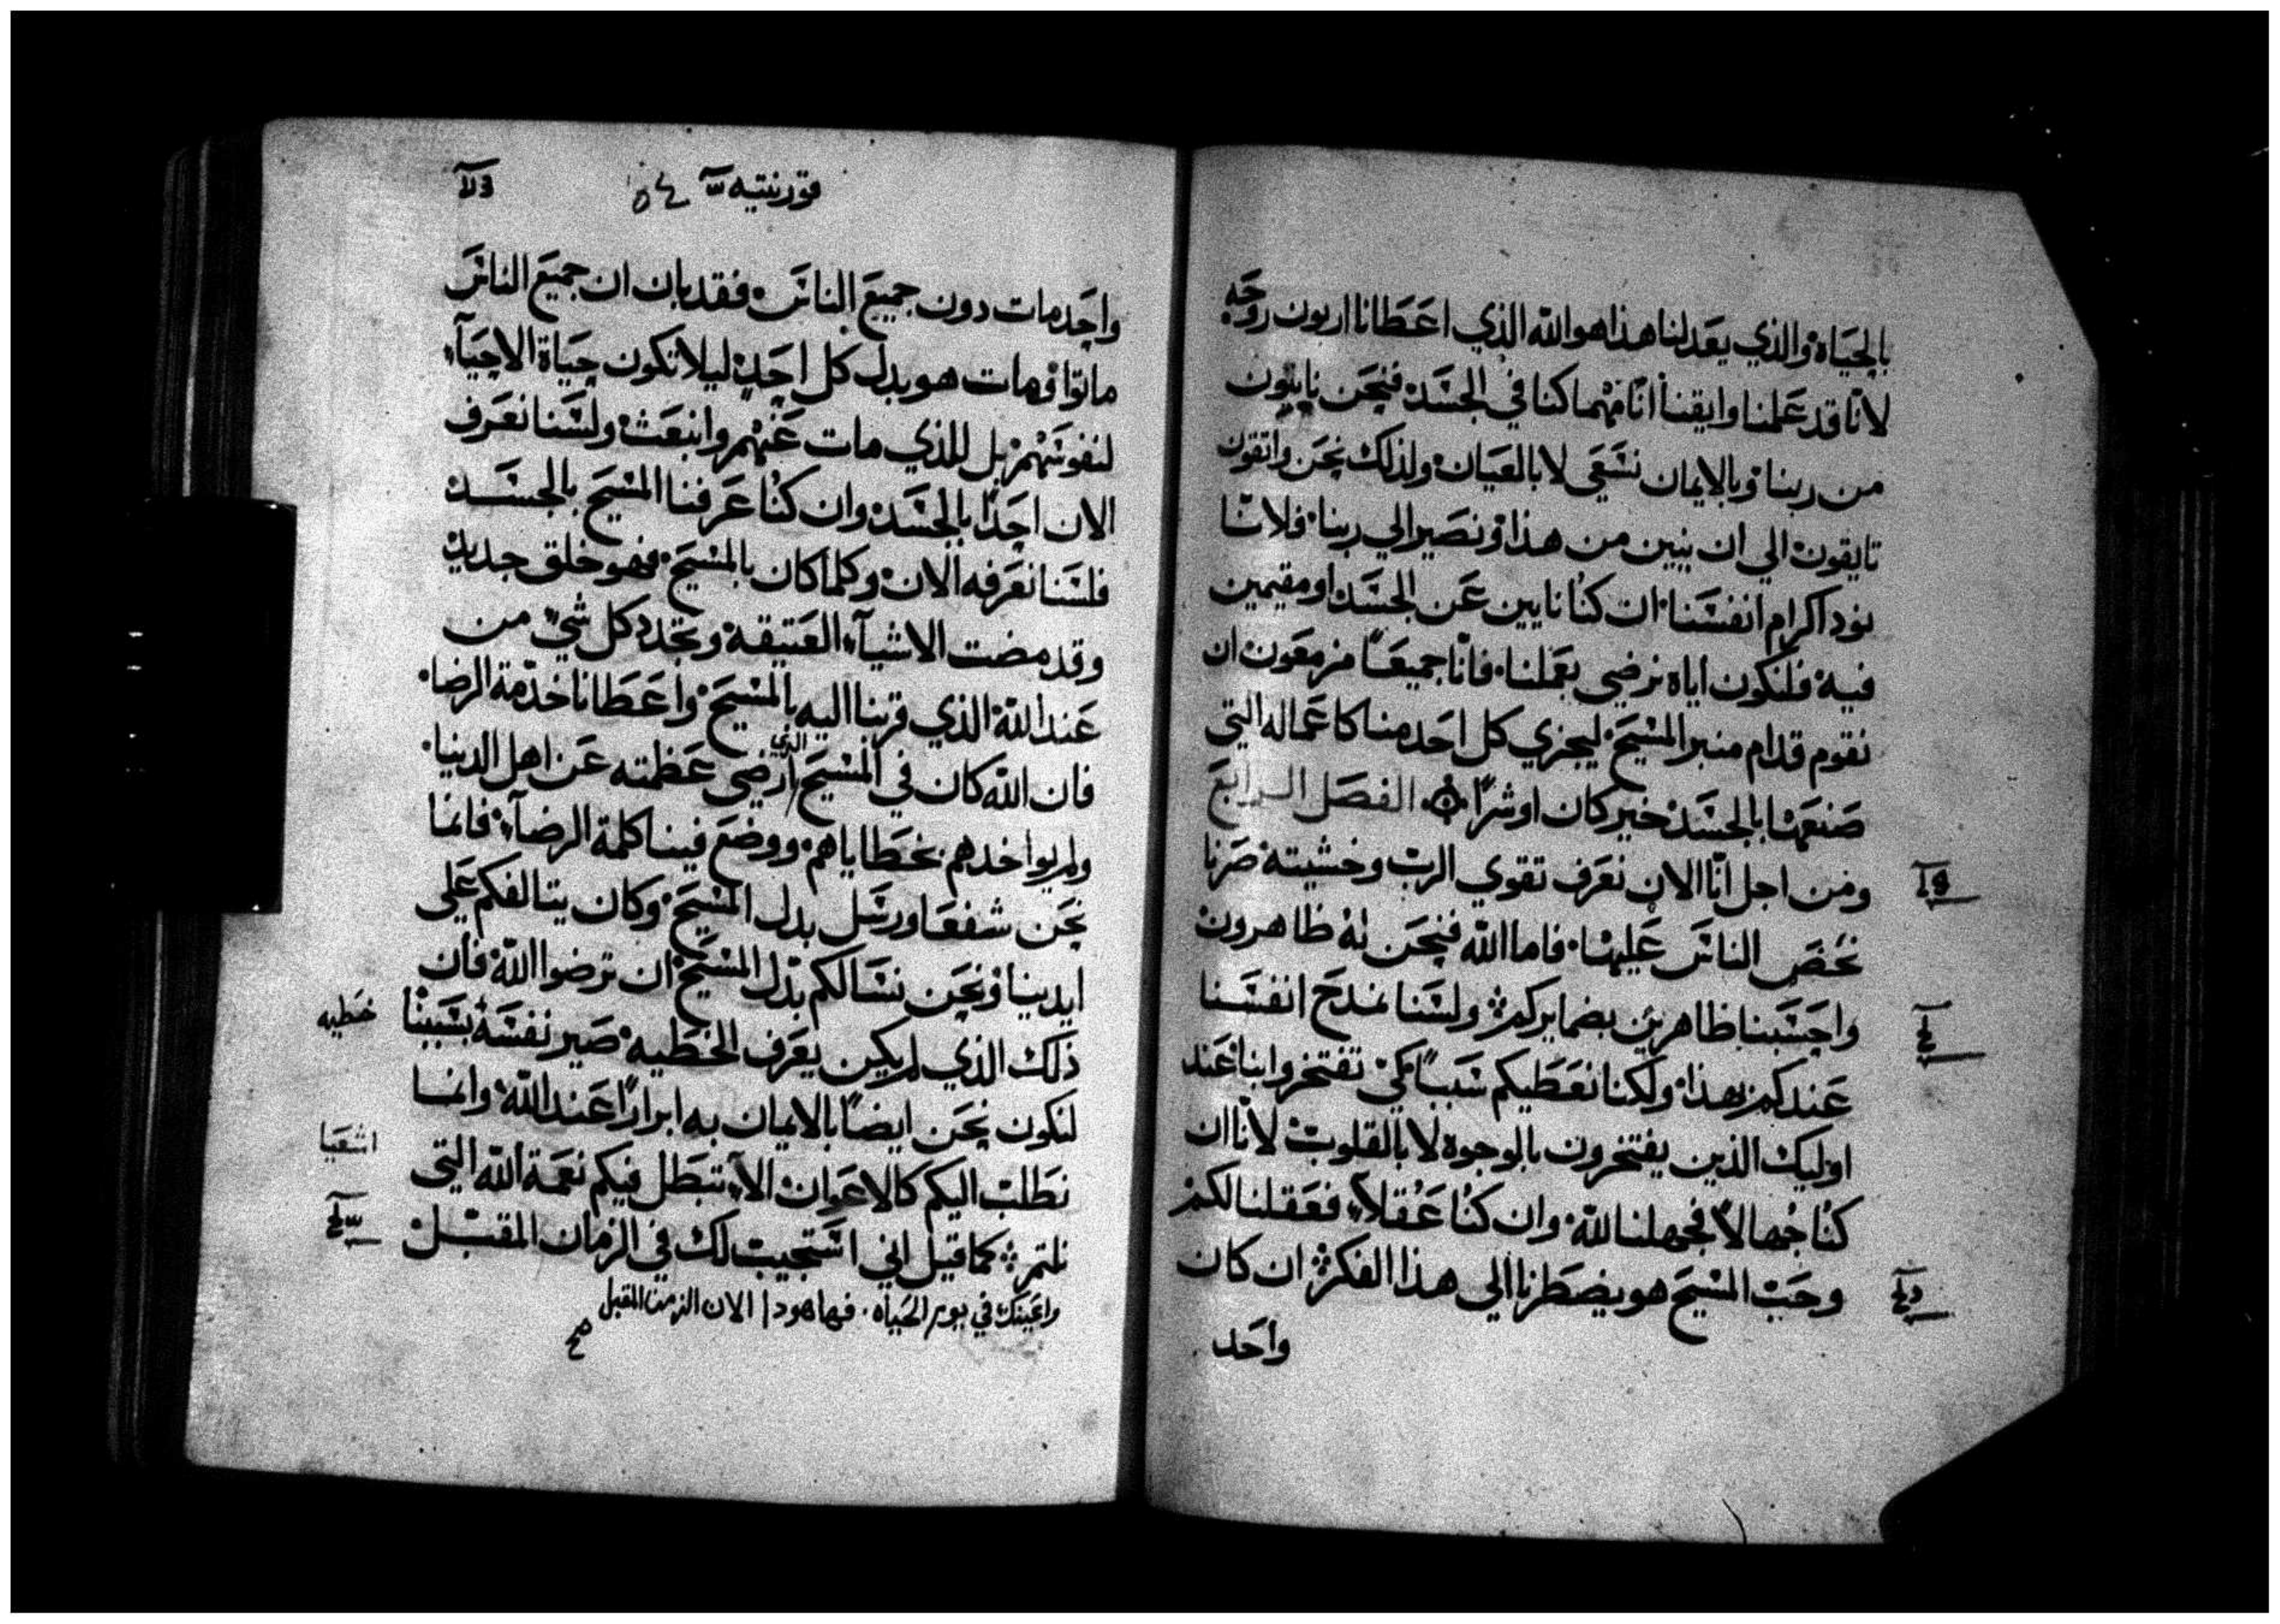 بالحياة والذي يعدلنا هذا هو الله الذي اعطانا اربون روحه
لانا قد علمنا وايقنا انا مهما كنا في الجسد فنحن نايبون
من ربنا وبالايمان نسعي لا بالعيان ولذلك نحن واثقون
تايقون الي ان نبين من هذا ونصير الي ربنا فلاننا
نود اكرام انفسنا ان كنا نايين عن الجسد او مقيمين
فيه فلنكون اياه نرضي بعملنا فانا جميعا مزمعون ان
نقوم قدام منبر المسيح ليجزي كل احد منا كاعماله التي
صنعها بالجسد خير كان او شرا الفصل الرابع
ومن اجل انا الان نعرف تقوي الرب وخشيته صرنا
نحض الناس عليها فاما الله فنحن له ظاهرون
واحسبنا ظاهرين بضمايركم ولسنا نمدح انفسنا
عندكم بهذا ولكنا نعطيكم سببا كي تفتخروا بنا عند
اوليك الذين يفتخرون بالوجوه لا بالقلوب لانا ان
كنا جهالا فجهلنا لله وان كنا عقلا فعقلنا لكم
وحب المسيح هو يضطرنا الي هذا الفكر ان كان
واحد
قورنتيه
واحد مات دون جميع الناس فقد بان ان جميع الناس
ماتوا ومات هو بدل كل احد ليلا تكون حياة الاحيآء
لنفوسهم بل للذي مات عنهم وانبعث ولسنا نعرف
الان احدا بالجسد وان كنا عرفنا المسيح بالجسد
فلسنا نعرفه الان وكلما كان بالمسيح فهو خلق جديد
وقد مضت الاشيآء العتيقة وتجدد كل شي من
عند الله الذي قربنا اليه بالمسيح واعطانا خدمة الرضا
فان الله كان في المسيح الذي ارضي عظمته عن اهل الدنيا
ولم يواخدهم بخطاياهم ووضع فينا كلمة الرضآء فانما
نحن شفعا ورسل بدل المسيح وكان يتالفكم علي
ايدينا ونحن نسالكم بدل المسيح ان ترضوا الله فان
ذلك الذي لم يكن يعرف الخطيه صير نفسه بسببنا
خطيه
لنكون نحن ايضا بالايمان به ابرارا عند الله وانما
نطلب اليكم كالاعوان الا تبطل فيكم نعمة الله التي
اشعيا
نلتم كما قيل اني استجيب لك في الزمان المقبل
واعينك في يوم الحياه فها هودا الان الزمن المقبل
صح